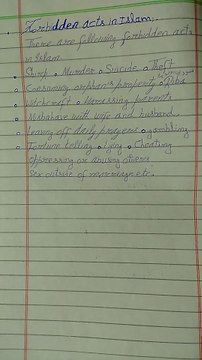 • Forbidden acts in Islam.
There are following forbidden acts
in Islam
• Shirk • Murder • Suicide • Theft
• Consuming orphan's property • Riba
• witchcraft • Harassing parents
• Misbehave with wife and husband.
• Leaving off daily prayers • gambling
• Fortune telling • Lying • Cheating
Oppressing or abusing others
Sex outside of marriage etc.